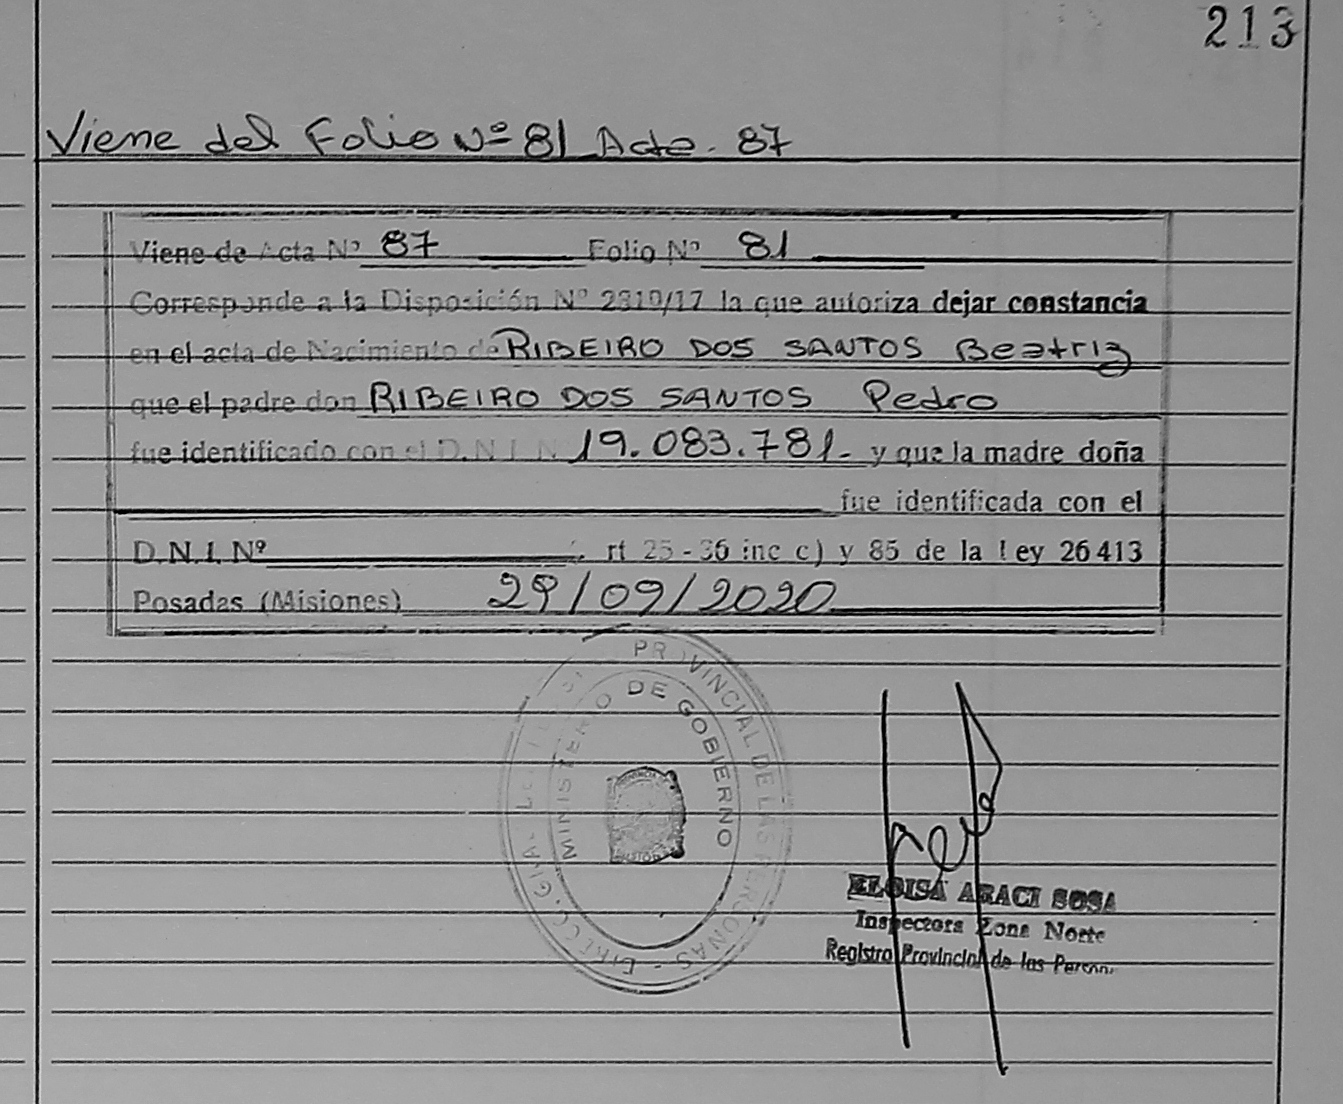 213
Viene del Folio Nº 81 Acta. 87
Viene de Acta Nº 87 Folio Nº 81
Corresponde a la Disposición Nº 2310/17 la que autoriza dejar constancia
en el acta de Nacimiento de RIBEIRO DOS SANTOS Beatriz
que el padre don RIBEIRO DOS SANTOS Pedro
fue identificado con el D.N.I. N 19.083.781.- y que la madre doña
fue identificada con el
D.N.I. Nº rt 25-36 inc c) y 85 de la Ley 26413
Posadas (Misiones) 29/09/2020
PROVINCIAL DE LAS PERSONAS
MINISTERIO DE GOBIERNO
ELOISA ARACI SOSA
Inspectora Zona Norte
Registro Provincial de las Person